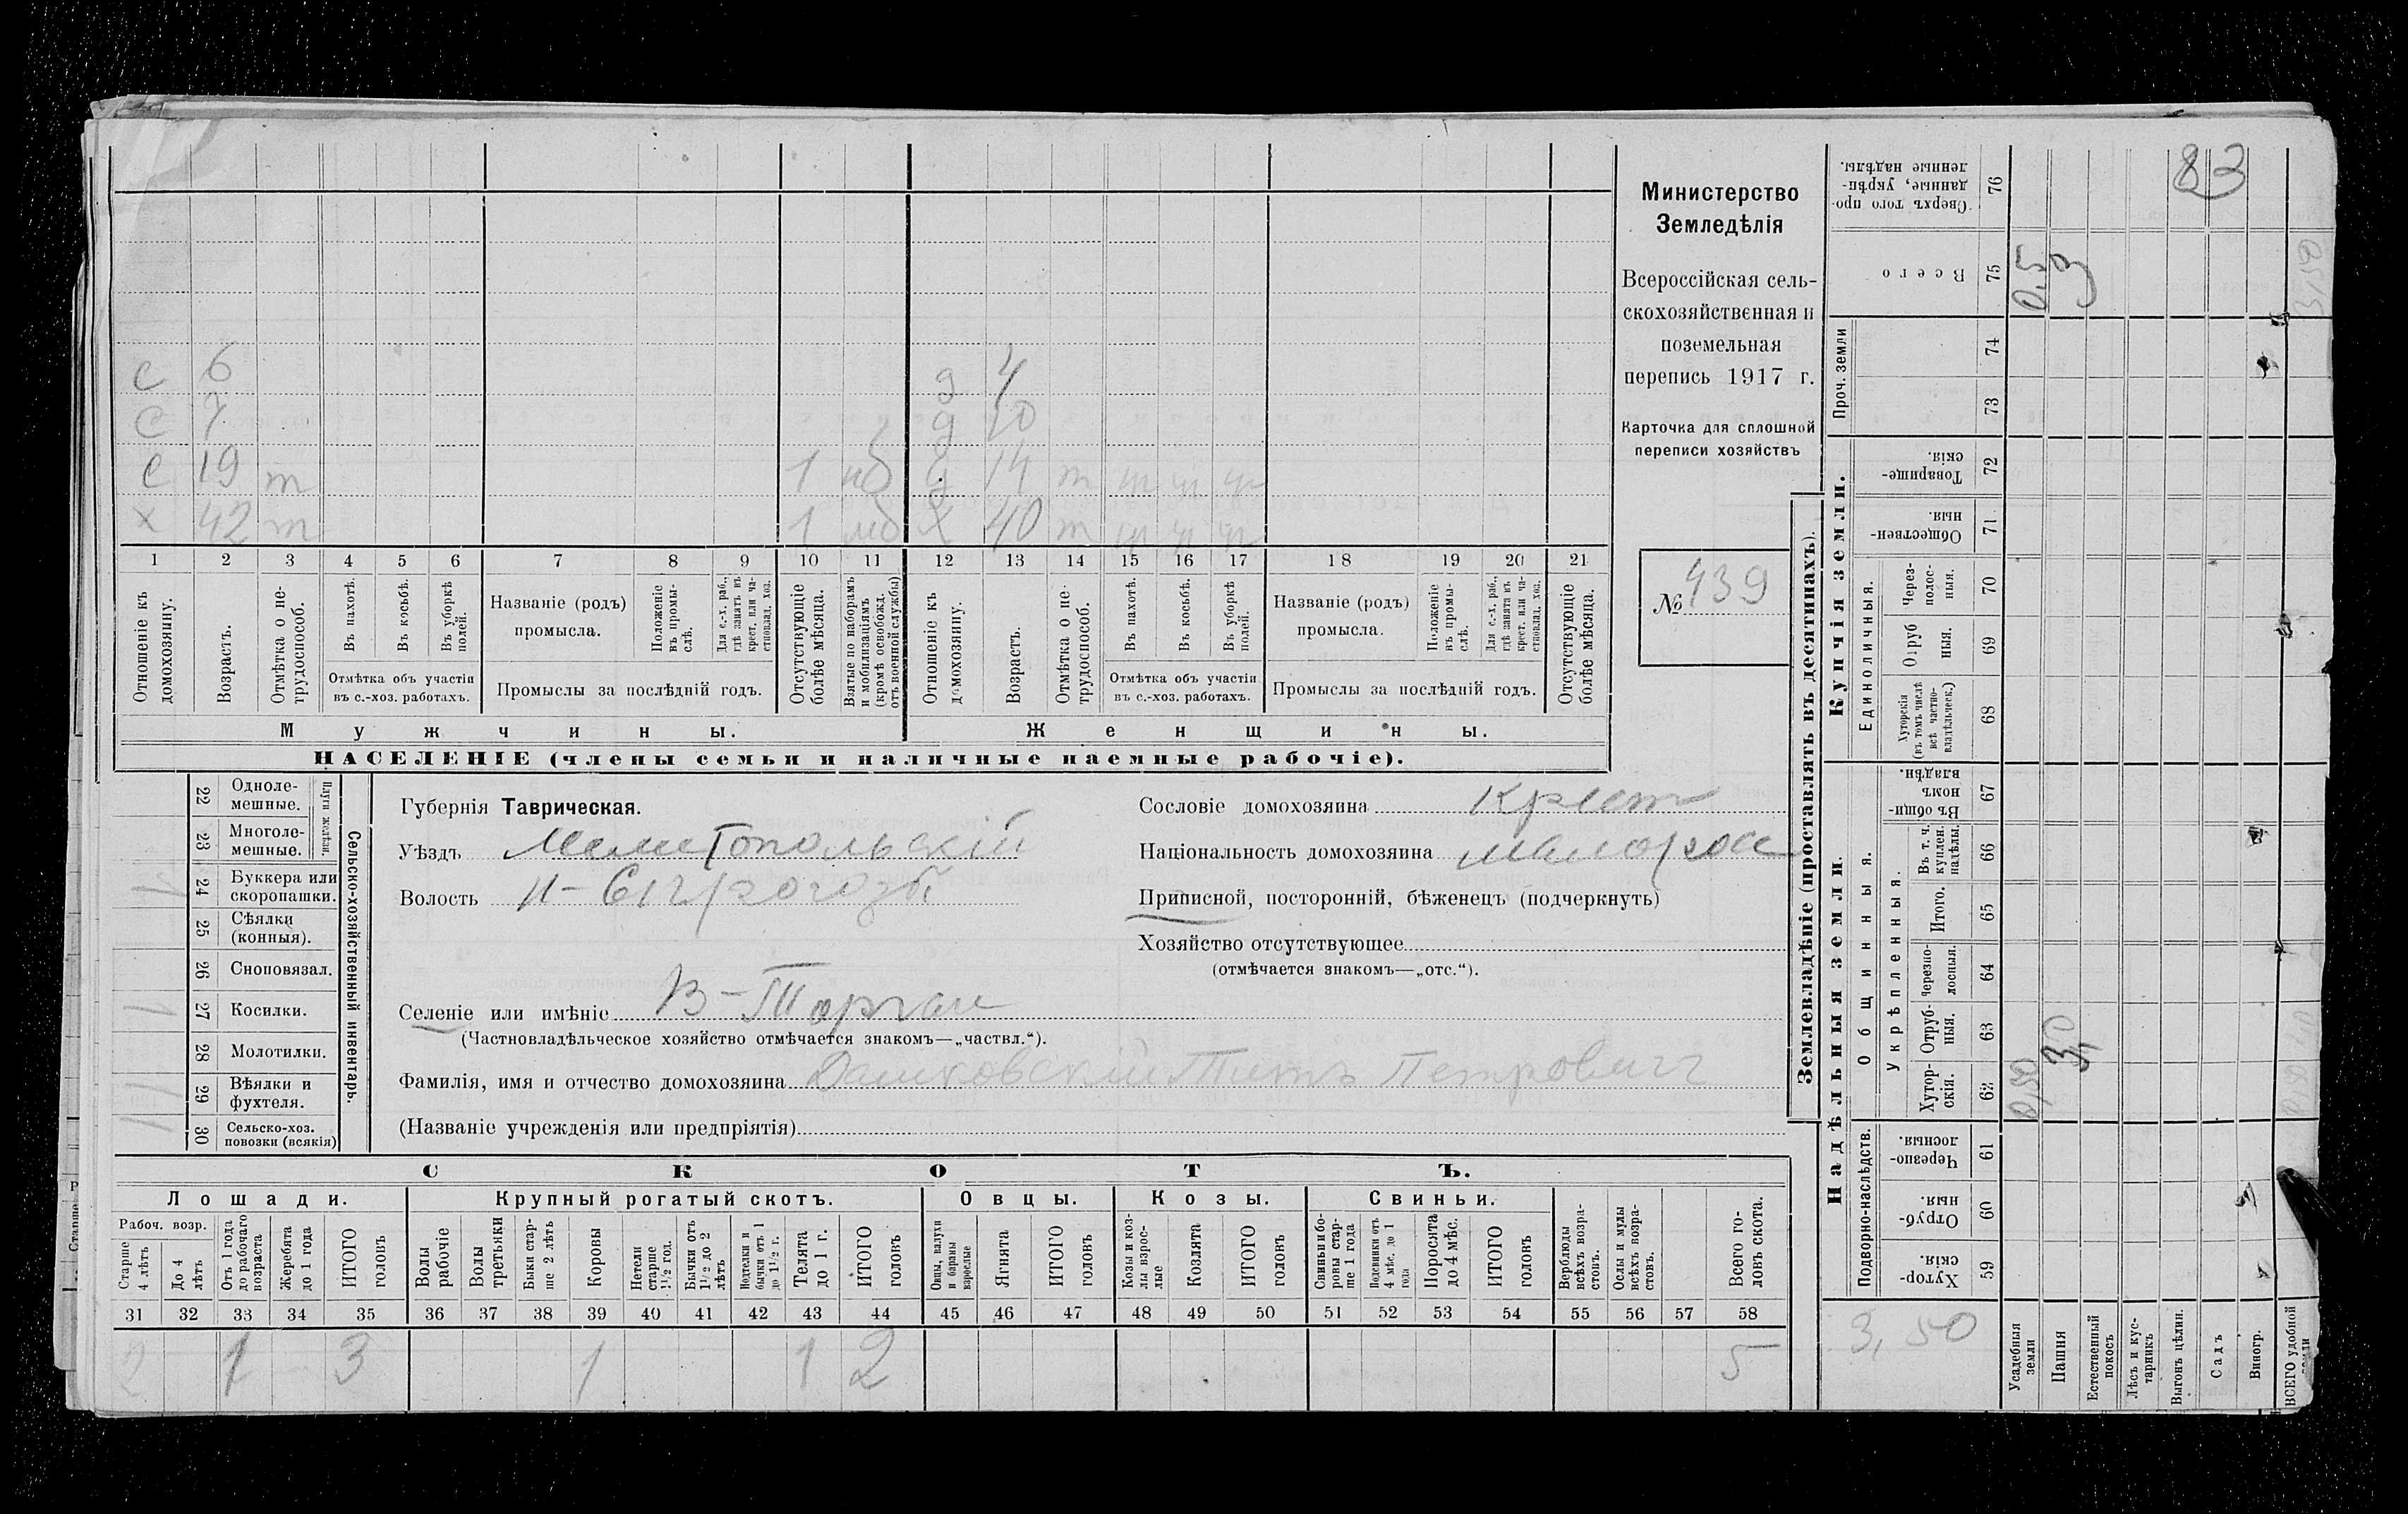 83
Министерство
Земледѣлія
Всероссійская сель-
скохозяйственная и
поземельная
перепись 1917 г.
Карточка для сплошной
переписи хозяйствъ
№ 439
с 6 д 4
с 7 д 10
с 19 т 1 мб д 14 т
х 42 т 1 мб х 40 т
1 2 3 4 5 6 7 8 9 10 11 12 13 14 15 16 17 18 19 20 21
Отношеніе къ домохозяину.
Возрастъ.
Отмѣтка о не-трудоспособ.
Въ пахотѣ.
Въ косьбѣ.
Въ уборкѣ полей.
Отмѣтка объ участіи
въ с.-хоз. работахъ.
Названіе (родъ)
промысла.
Положеніе въ промы-слѣ.
Для с.-х. раб., гдѣ занятъ въ крест. или ча-стновлад. хоз.
Промыслы за послѣдній годъ.
Отсутствующіе болѣе мѣсяца.
Взятые по наборамъ и мобилизаціямъ (кромѣ освобожд. отъ военной службы)
Отношеніе къ домохозяину.
Возрастъ.
Отмѣтка о не-трудоспособ.
Въ пахотѣ.
Въ косьбѣ.
Въ уборкѣ полей.
Отмѣтка объ участіи
въ с.-хоз. работахъ.
Названіе (родъ)
промысла.
Положеніе въ промы-слѣ.
Для с.-х. раб., гдѣ занята въ крест. или ча-стновлад. хоз.
Промыслы за послѣдній годъ.
Отсутствующіе болѣе мѣсяца.
Мужчины. Женщины.
НАСЕЛЕНІЕ (члены семьи и наличные наемные рабочіе).
22 Одноле-мешные.
23 Многоле-мешные.
Плуги желѣзн.
24 Буккера или скоропашки.
25 Сѣялки (конныя).
26 Сноповязал.
27 Косилки. 1
28 Молотилки.
29 Вѣялки и фухтеля.
30 Сельско-хоз. повозки (всякія)
Сельско-хозяйственный инвентарь.
Губернія Таврическая.
Уѣздъ Мелитопольскій
Волость Н-Сѣрогозы
Селеніе или имѣніе В-Торгаи
(Частновладѣльческое хозяйство отмѣчается знакомъ—„частвл.“).
Фамилія, имя и отчество домохозяина Дашковскій Титъ Петровичъ
(Названіе учрежденія или предпріятія)
Сословіе домохозяина Крест
Національность домохозяина малоросс
Приписной, посторонній, бѣженецъ (подчеркнуть)
Хозяйство отсутствующее
(отмѣчается знакомъ—„отс.“).
СКОТЪ.
Лошади. Крупный рогатый скотъ. Овцы. Козы. Свиньи.
Рабоч. возр.
Старше 4 лѣтъ
До 4 лѣтъ
Отъ 1 года до рабочаго возраста
Жеребята до 1 года
ИТОГО головъ
Волы рабочіе
Волы третьяки
Быки стар-ше 2 лѣтъ
Коровы
Нетели старше 1½ год.
Бычки отъ 1½ до 2 лѣтъ
Подтелки и бычки отъ 1 до 1½ г.
Телята до 1 г.
ИТОГО головъ
Овцы, валухи и бараны взрослые
Ягнята
ИТОГО головъ
Козы и коз-лы взрос-лые
Козлята
ИТОГО головъ
Свиньи и бо-ровы стар-ше 1 года
Подсвинки отъ 4 мѣс. до 1 года
Поросята до 4 мѣс.
ИТОГО головъ
Верблюды всѣхъ возра-стовъ.
Ослы и мулы всѣхъ возра-стовъ.
Всего го-ловъ скота.
31 32 33 34 35 36 37 38 39 40 41 42 43 44 45 46 47 48 49 50 51 52 53 54 55 56 57 58
2 1 3 1 1 2 5
Землевладѣніе (проставлять въ десятинахъ).
Надѣльныя земли.
Купчія земли.
Подворно-наслѣдств.
Общинныя.
Укрѣпленныя.
Единоличныя.
Хутор-скія. 59
Отруб-ныя. 60
Черезпо-лосныя. 61
Хутор-скія. 62
Отруб-ныя. 63
Черезпо-лосныя. 64
Итого. 65
Въ т. ч. куплен. надѣлы. 66
Въ общи-номъ владѣн. 67
Хуторскія (въ томъ числѣ всѣ частно-владѣльческ.) 68
Отруб ныя. 69
Через-полос-ныя. 70
Обществен-ныя. 71
Товарище-скія. 72
Проч. земли
73 74
Всего 75
Сверхъ того про-данные, укрѣп-ленные надѣлы. 76
0,5
3
0,50
3,0
3,50
Усадебныя земли
Пашня
Естественный покосъ
Лѣсъ и кус-тарникъ
Выгонъ цѣлин.
Садъ
Виногр.
ВСЕГО удобной земли